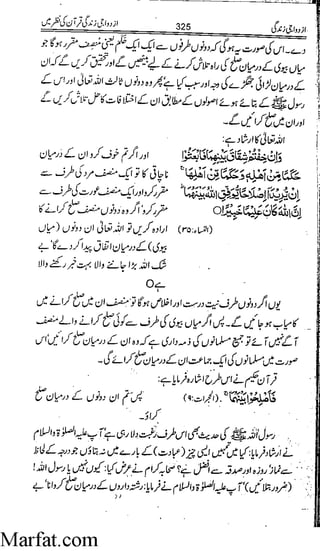 ازدواجی زندگی 325 ازدواجی زندگی قرآن کی نظر میں
دے۔ اس کی صورت یہ ہو گی کہ دونوں طرفوں سے ایک ایک حکم یعنی منصف مقرر ہو گا جو
میاں بیوی کے درمیان صلح کی راہ تلاش کرنے کے لیے بیٹھیں گے اور تحقیق کریں گے کہ ان
کے درمیان لڑائی جھگڑے کی وجہ اور سبب کیا ہے پھر وہ دونوں ثالث اللہ تعالیٰ اور اس کے
رسول ﷺ کے بتائے ہوئے اصولوں کے مطابق ان کے اختلافات کا حل تلاش کریں گے
اور ان میں صلح کرائیں گے۔
اللہ تعالیٰ کا ارشاد ہے:
وَاِنْ خِفْتُمْ شِقَاقَ بَيْنِهِمَا فَابْعَثُوْا اور اگر تم خوف کرو ان کے درمیان
حَكَمًا مِّنْ اَهْلِهٖ وَحَكَمًا مِّنْ اَهْلِهَا ۚ ناچاقی کا تو ایک منصف مرد کی طرف سے
اِنْ يُّرِيْدَآ اِصْلَاحًا يُّوَفِّقِ اللّٰهُ بَيْنَهُمَا ۭ مقرر کرو اور ایک منصف عورت کی طرف سے
اِنَّ اللّٰهَ كَانَ عَلِيْمًا خَبِيْرًا○ مقرر کرو' اگر وہ دونوں منصف صلح کرانے کا
(النساء: ۳۵) ارادہ کریں تو اللہ تعالیٰ ان دونوں (میاں
بیوی) کے درمیان اتفاق پیدا کر دے گا' بے
شک اللہ بڑا جاننے والا بہت خبر رکھنے والا
ہے○
یوں اگر دونوں طرف نیت درست اور اخلاص ہو گا تو منصف ان میں صلح کرانے میں
کامیاب ہو جائیں گے۔ پس اگر میاں بیوی کی طرف سے کوئی صلح کرانے والے منصف
آگے نہیں آئے تو جمیع مسلمانوں کی ذمہ داری ہے کہ وہ ان کے درمیان صلح کرائیں' اس
صورت میں مسلمانوں کی ایک جماعت ان کے درمیان صلح کرائے گی۔
قرآن حکیم نے اس طرح اشارہ فرمایا ہے:
فَاَصْلِحُوْا بَيْنَهُمَا ۔ (الحجرات: ۹) پس تم ان دونوں کے درمیان صلح
کراؤ۔
رسول اللہ ﷺ کی حدیث بھی اس طرف رغبت دلا رہی ہے' آپ علیہ الصلوٰۃ والسلام
نے ارشاد فرمایا: کیا میں تمہیں ایسی چیز (عبادت) کے بارے میں نہ بتاؤں جو درجہ کے لحاظ
سے نماز' روزہ اور صدقہ سے افضل ہے؟ صحابہ کرام نے عرض کیا: کیوں نہیں یا رسول اللہ!
(ضرور بتلائیں)' آپ علیہ الصلوٰۃ والسلام نے فرمایا: رشتہ داروں کے درمیان صلح کروانا' بے
Marfat.com